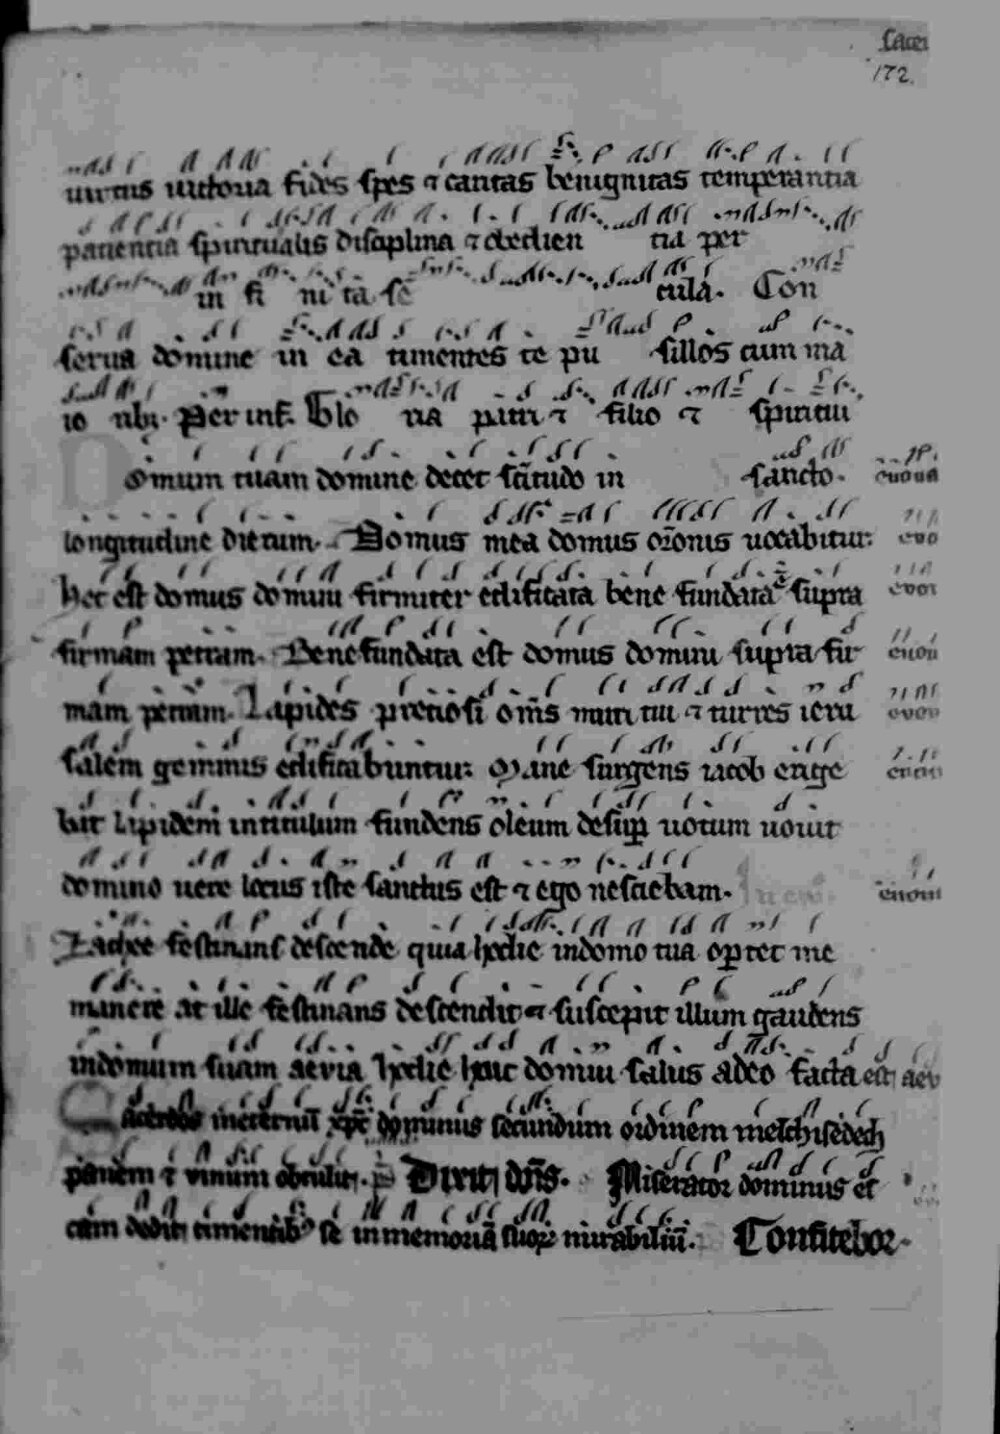 Sacer
172.
uirtus uictoria fides spes ⁊ caritas benignitas temperantia
patientia spiritualis disciplina ⁊ obedien tia per
in fi ni ta se cula. Con
serua domine in ea timentes te pu sillos cum ma
io ribꝫ. Per inf. Glo ria patri ⁊ filio ⁊ spiritui
Domum tuam domine decet sc̄itudo in sancto. euoua
longitudine dierum. Domus mea domus or̄onis uocabitur. euo
Hec est domus domini firmiter edificata bene fundata ē supra euoı
firmam petram. Bene fundata est domus domini supra fir euou
mam petram. Lapides pretiosi om̄s muri tui ⁊ turres ieru euou
salem gemmis edificabuntur. Mane surgens iacob erige
bat lapidem in titulum fundens oleum desuꝑ uotum uouit
domino uere locus iste sanctus est ⁊ ego nesciebam. euoui
Zachee festinans descende quia hodie in domo tua oꝑtet me
manere at ille festinans descendit ⁊ suscepit illum gaudens
in domum suam aeuia hodie huic domui salus a deo facta est aeu
Sacerdos in eternū xp̄c dominus secundum ordinem melchisedech
panem ⁊ uinum obtulit. p̄ Dixit dn̄s. Miserator dominus et
cam dedit timentibꝰ se in memoriā suoꝝ mirabiliū. Confitebor.